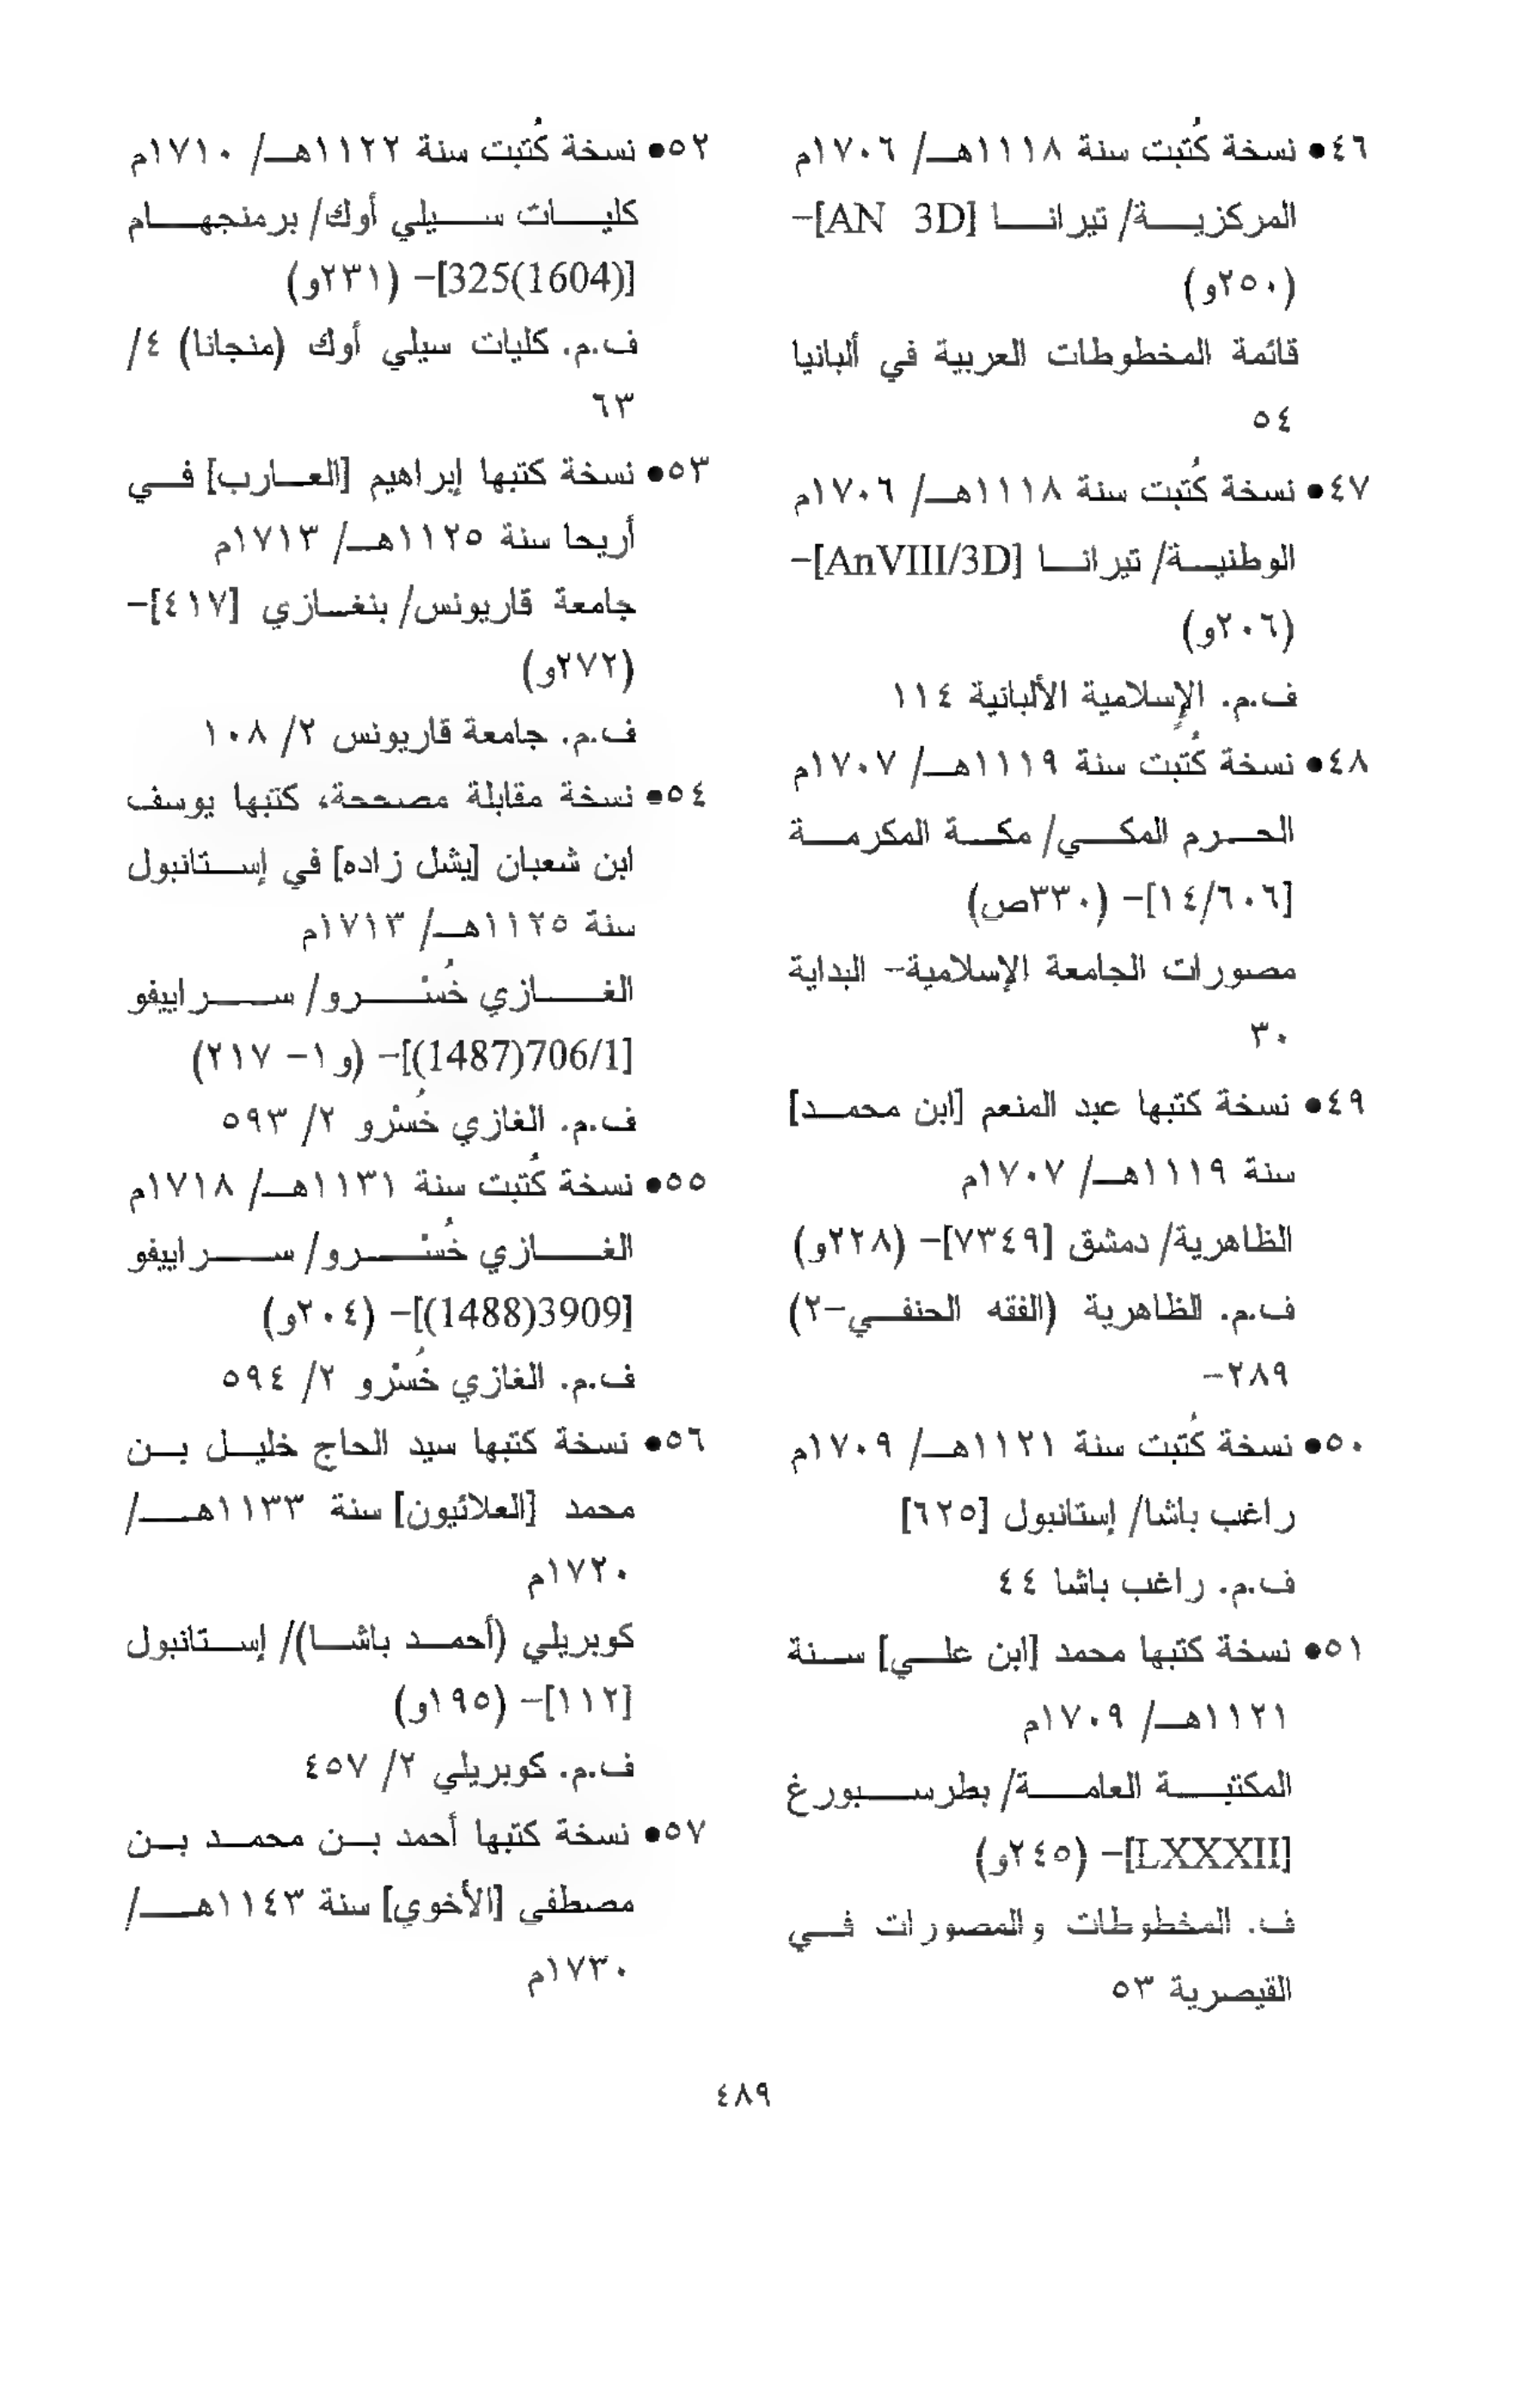 ٤٦● نسخة كُتبت سنة ١١١٨هـ/ ١٧٠٦م
المركزية/ تيرانا [AN 3D]–
(٢٥٠و)
قائمة المخطوطات العربية في ألبانيا
٥٤
٤٧● نسخة كُتبت سنة ١١١٨هـ/ ١٧٠٦م
الوطنية/ تيرانا [AnVIII/3D]–
(٢٠٦و)
ف.م. الإسلامية الألبانية ١١٤
٤٨● نسخة كُتبت سنة ١١١٩هـ/ ١٧٠٧م
الحرم المكي/ مكة المكرمة
[١٤/٦٠٦]– (٣٣٠ص)
مصورات الجامعة الإسلامية– البداية
٣٠
٤٩● نسخة كتبها عبد المنعم [ابن محمد]
سنة ١١١٩هـ/ ١٧٠٧م
الظاهرية/ دمشق [٧٣٤٩]– (٢٢٨و)
ف.م. الظاهرية (الفقه الحنفي–٢)
٢٨٩–
٥٠● نسخة كُتبت سنة ١١٢١هـ/ ١٧٠٩م
راغب باشا/ إستانبول [٦٢٥]
ف.م. راغب باشا ٤٤
٥١● نسخة كتبها محمد [ابن علي] سنة
١١٢١هـ/ ١٧٠٩م
المكتبة العامة/ بطرسبورغ
[LXXXII]– (٢٤٥و)
ف. المخطوطات والمصورات في
القيصرية ٥٣
٥٢● نسخة كُتبت سنة ١١٢٢هـ/ ١٧١٠م
كليات سيلي أوك/ برمنجهام
[325(1604)]– (٢٣١و)
ف.م. كليات سيلي أوك (منجانا) ٤/
٦٣
٥٣● نسخة كتبها إبراهيم [العارب] في
أريحا سنة ١١٢٥هـ/ ١٧١٣م
جامعة قاريونس/ بنغازي [٤١٧]–
(٢٧٢و)
ف.م. جامعة قاريونس ٢/ ١٠٨
٥٤● نسخة مقابلة مصححة، كتبها يوسف
ابن شعبان [يشل زاده] في إستانبول
سنة ١١٢٥هـ/ ١٧١٣م
الغازي خُسْرو/ سراييفو
[706/1(1487)]– (و١– ٢١٧)
ف.م. الغازي خُسْرو ٢/ ٥٩٣
٥٥● نسخة كُتبت سنة ١١٣١هـ/ ١٧١٨م
الغازي خُسْرو/ سراييفو
[3909(1488)]– (٢٠٤و)
ف.م. الغازي خُسْرو ٢/ ٥٩٤
٥٦● نسخة كتبها سيد الحاج خليل بن
محمد [العلائيون] سنة ١١٣٣هـ/
١٧٢٠م
كوبريلي (أحمد باشا)/ إستانبول
[١١٢]– (١٩٥و)
ف.م. كوبريلي ٢/ ٤٥٧
٥٧● نسخة كتبها أحمد بن محمد بن
مصطفى [الأخوي] سنة ١١٤٣هـ/
١٧٣٠م
٤٨٩